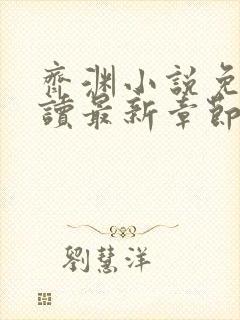 齊淵小說免
讀最新章節
劉慧洋